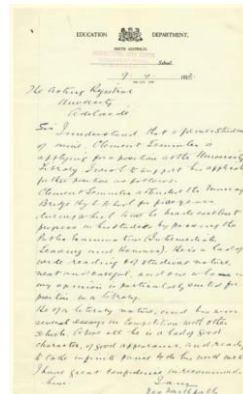 EDUCATION DEPARTMENT.
SOUTH AUSTRALIA
School.
The Acting Registrar
University
Adelaide
Sir I understand that a former student
of mine, Clement Semmler is
applying for a position at the University
Library. I wish to support his application
for this position as follows.
Clement Semmler attended the Murray
Bridge High School for five years
during which time he made excellent
progress in his studies by passing the
Public Examinations (Intermediate,
Leaving and Honours). He is a lad of
wide reading & of studious nature,
neat and careful, and one who in
my opinion is particularly suited for
position in a Library.
He is of a literary nature, and has won
several essays in competition with other
schools. Above all he is a lad of good
character, of good appearance, and ready
to take infinite pains to do his work well.
I have great confidence in recommending
him.